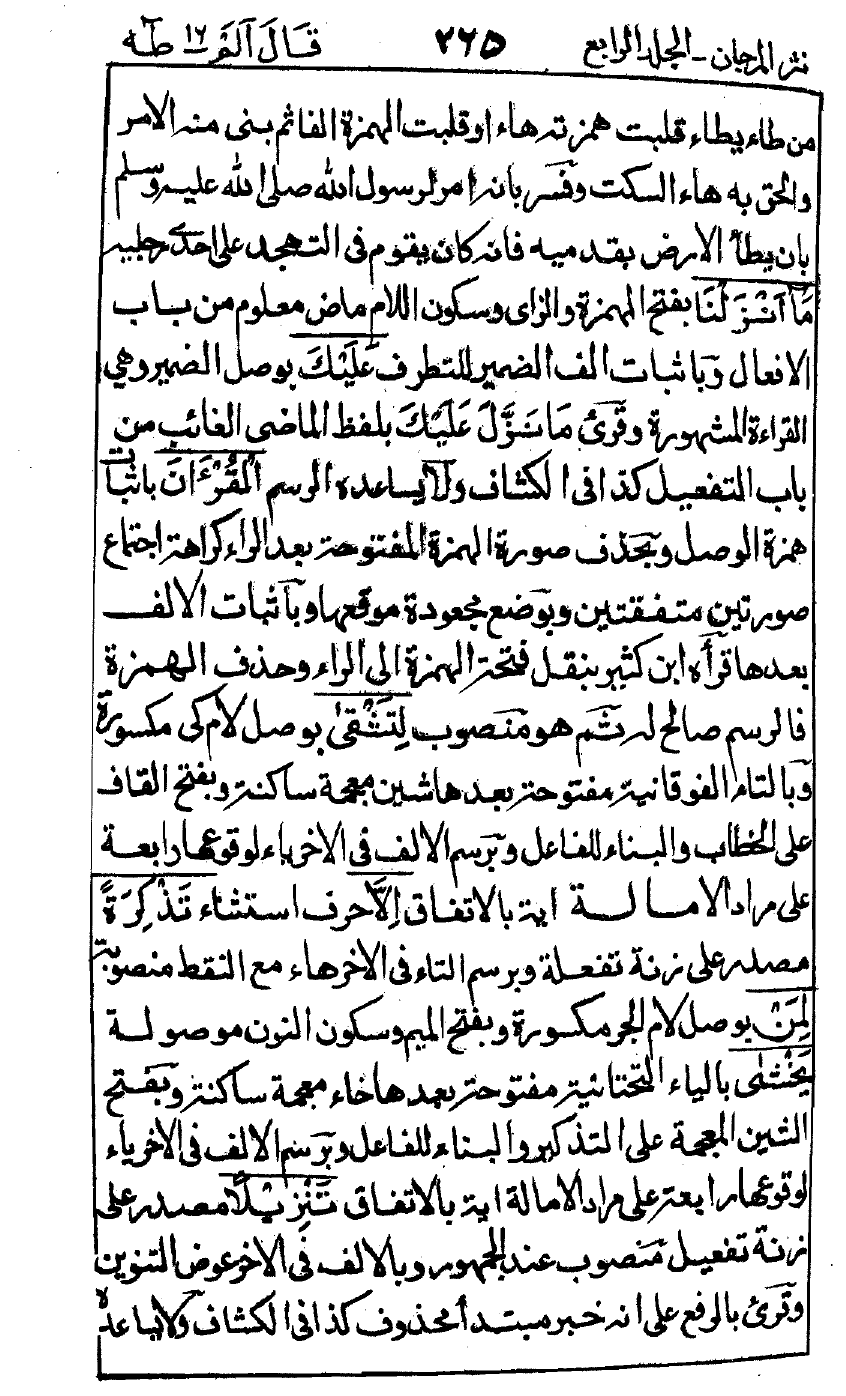 نثر المرجان - الجلد الرابع ٢٦٥ قَالَ آلَمْ ١٦ طٰهٰ
من طاء يطاء قلبت همزته هاء او قلبت الهمزة الفا ثم بنى منه الامر
والحق به هاء السكت وفسر بانه امر لرسول الله صلى الله عليه وسلم
بان يطأ الارض بقدميه فانه كان يقوم فى التهجد على احدى رجليه
مَآ اَنْزَلْنَا بفتح الهمزة والزاى وسكون اللام ماض معلوم من باب
الافعال وباثبات الف الضمير للتطرف عَلَيْكَ بوصل الضمير وهى
القراءة المشهورة وقرئ مَا نَزَّلَ عَلَيْكَ بلفظ الماضى الغائب من
باب التفعيل كذا فى الكشاف ولا يساعده الرسم الْقُرْءَانَ باثبات
همزة الوصل وبحذف صورة الهمزة المفتوحة بعد الراء كراهة اجتماع
صورتين متفقتين وبوضع مجعودة موقعها وباثبات الالف
بعدها قرأه ابن كثير بنقل فتحة الهمزة الى الراء وحذف الهمزة
فالرسم صالح له ثم هو منصوب لِتَشْقٰى بوصل لام كى مكسورة
وبالتاء الفوقانية مفتوحة بعدها شين معجمة ساكنة وبفتح القاف
على الخطاب والبناء للفاعل وبرسم الالف فى الاخر ياء لوقوعها رابعة
على مراد الامالة اية بالاتفاق اِلَّا حرف استثناء تَذْكِرَةً
مصدر على زنة تفعلة وبرسم التاء فى الاخر هاء مع النقط منصوبة
لِمَنْ بوصل لام الجر مكسورة وبفتح الميم وسكون النون موصولة
يَخْشٰى بالياء التحتانية مفتوحة بعدها خاء معجمة ساكنة وبفتح
الشين المعجمة على التذكير والبناء للفاعل وبرسم الالف فى الاخر ياء
لوقوعها رابعة على مراد الامالة اية بالاتفاق تَنْزِيْلًا مصدر على
زنة تفعيل منصوب عند الجمهور وبالالف فى الاخر عوض التنوين
وقرئ بالرفع على انه خبر مبتدأ محذوف كذا فى الكشاف ولا يساعده